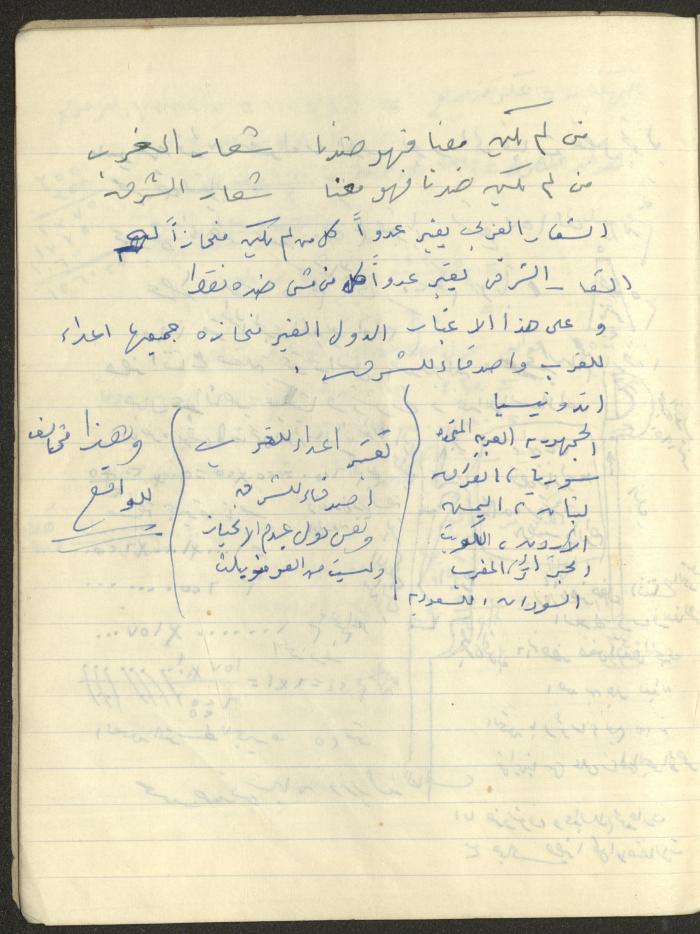 من لم يكن معنا فهو ضدنا شعار الغرب
من لم يكن ضدنا فهو معنا شعار الشرق
الشعار الغربي يعتبر عدواً كل من لم يكن منحازاً لهم
الشعار الشرقي يعتبر عدواً كل من مشى ضده فقط
و على هذا الاعتبار الدول الغير منحازه جميعها اعداء
للغرب واصدقاء للشرق .
اندونيسيا
الجمهوريه العربيه المتحده
سوريا ، العراق
لبنان ، اليمن
الأردن ، الكويت
الجزائر ، المغرب
السودان ، السعوديه
تعتبر اعداء للغرب
أصدقاء للشرق
وهي دول عدم الانحياز
وليست من
وهذا مخالف
للواقع